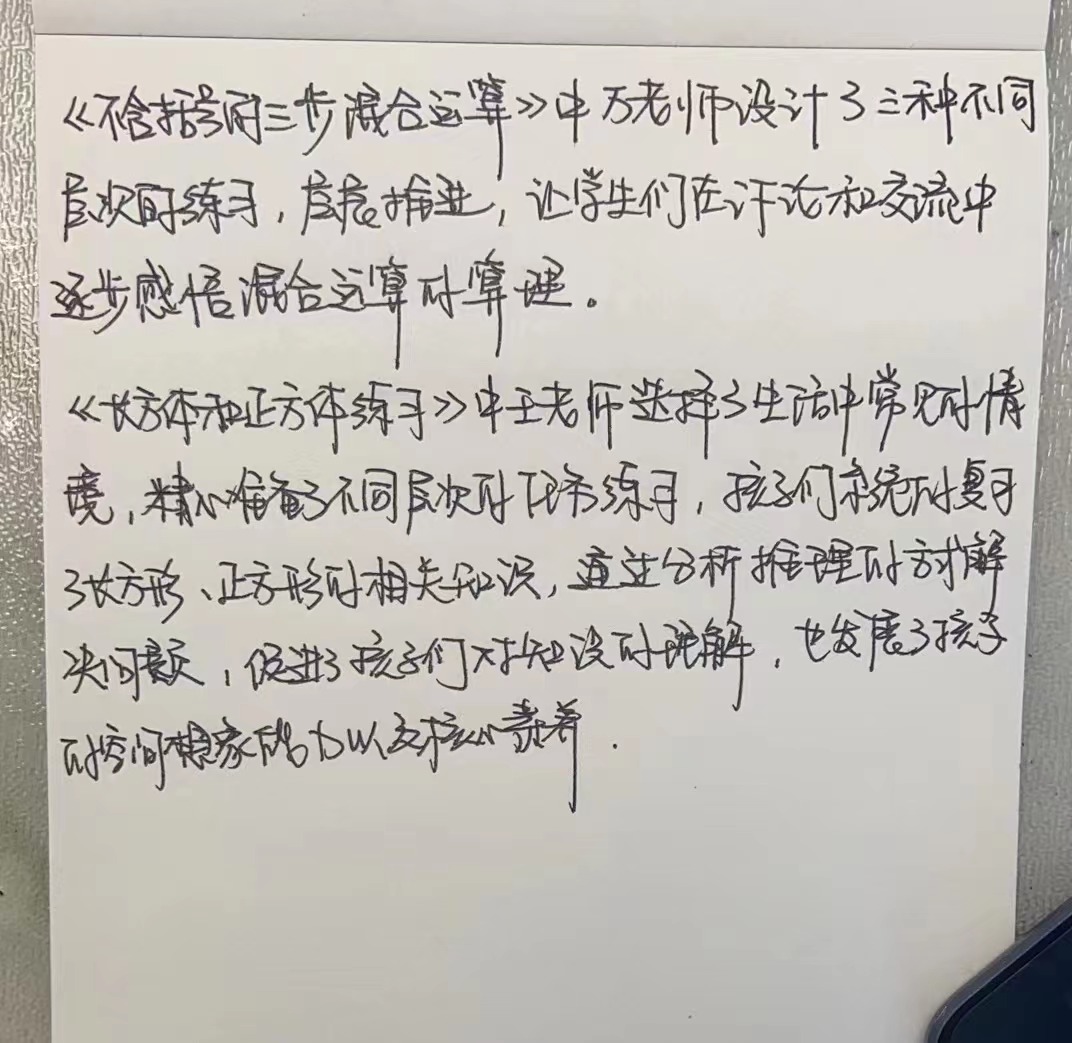 《不含括号的三步混合运算》中万老师设计了三种不同
层次的练习，层层推进，让学生们在讨论和交流中
逐步感悟混合运算的算理。
《长方体和正方体练习》中王老师选择了生活中常见的情
境，精心准备了不同层次的练习，孩子们系统的复习
了长方形、正方形的相关知识，通过分析推理的方式解
决问题，促进了孩子们对知识的理解，也发展了孩子
的空间想象能力以及核心素养.